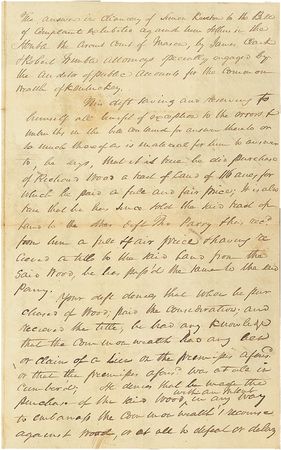 The answer in Chancery of Simon to the Bill
of Complaint exhibited against him & others in the
Honble the Circuit Court of by James Clark
& Robert Attorneys specially engaged by
the Auditor of public Accounts for the Common
wealth of Kentucky.
This deft saving and reserving to
himself all benefit of exception to the errors &
in the bill contained for answer thereto or
so much thereof as is material for him to answer
to, he says, that it is true he did purchase
of Richard Wood a tract of Land of acres, for
which he paid a full and fair price; It is also
true that he has since sold the said tract of
land to the other deft Parry &
from him a full & fair price & having re
ceived a title to the said Land from the
said Wood, he has pass'd the same to the said
Parry.
Your deft denies that when he pur
chased of Wood, paid the consideration, and
received the title, he had any knowledge
that the Commonwealth had any
or claim of a lien on the premises afors'd
or that the premises afors'd was at all in
cumbered; He denies that he made the
purchase of the said Wood with an intent in any way
to embarrass the Commonwealth's recourse
against Wood, or at all to defeat or delay